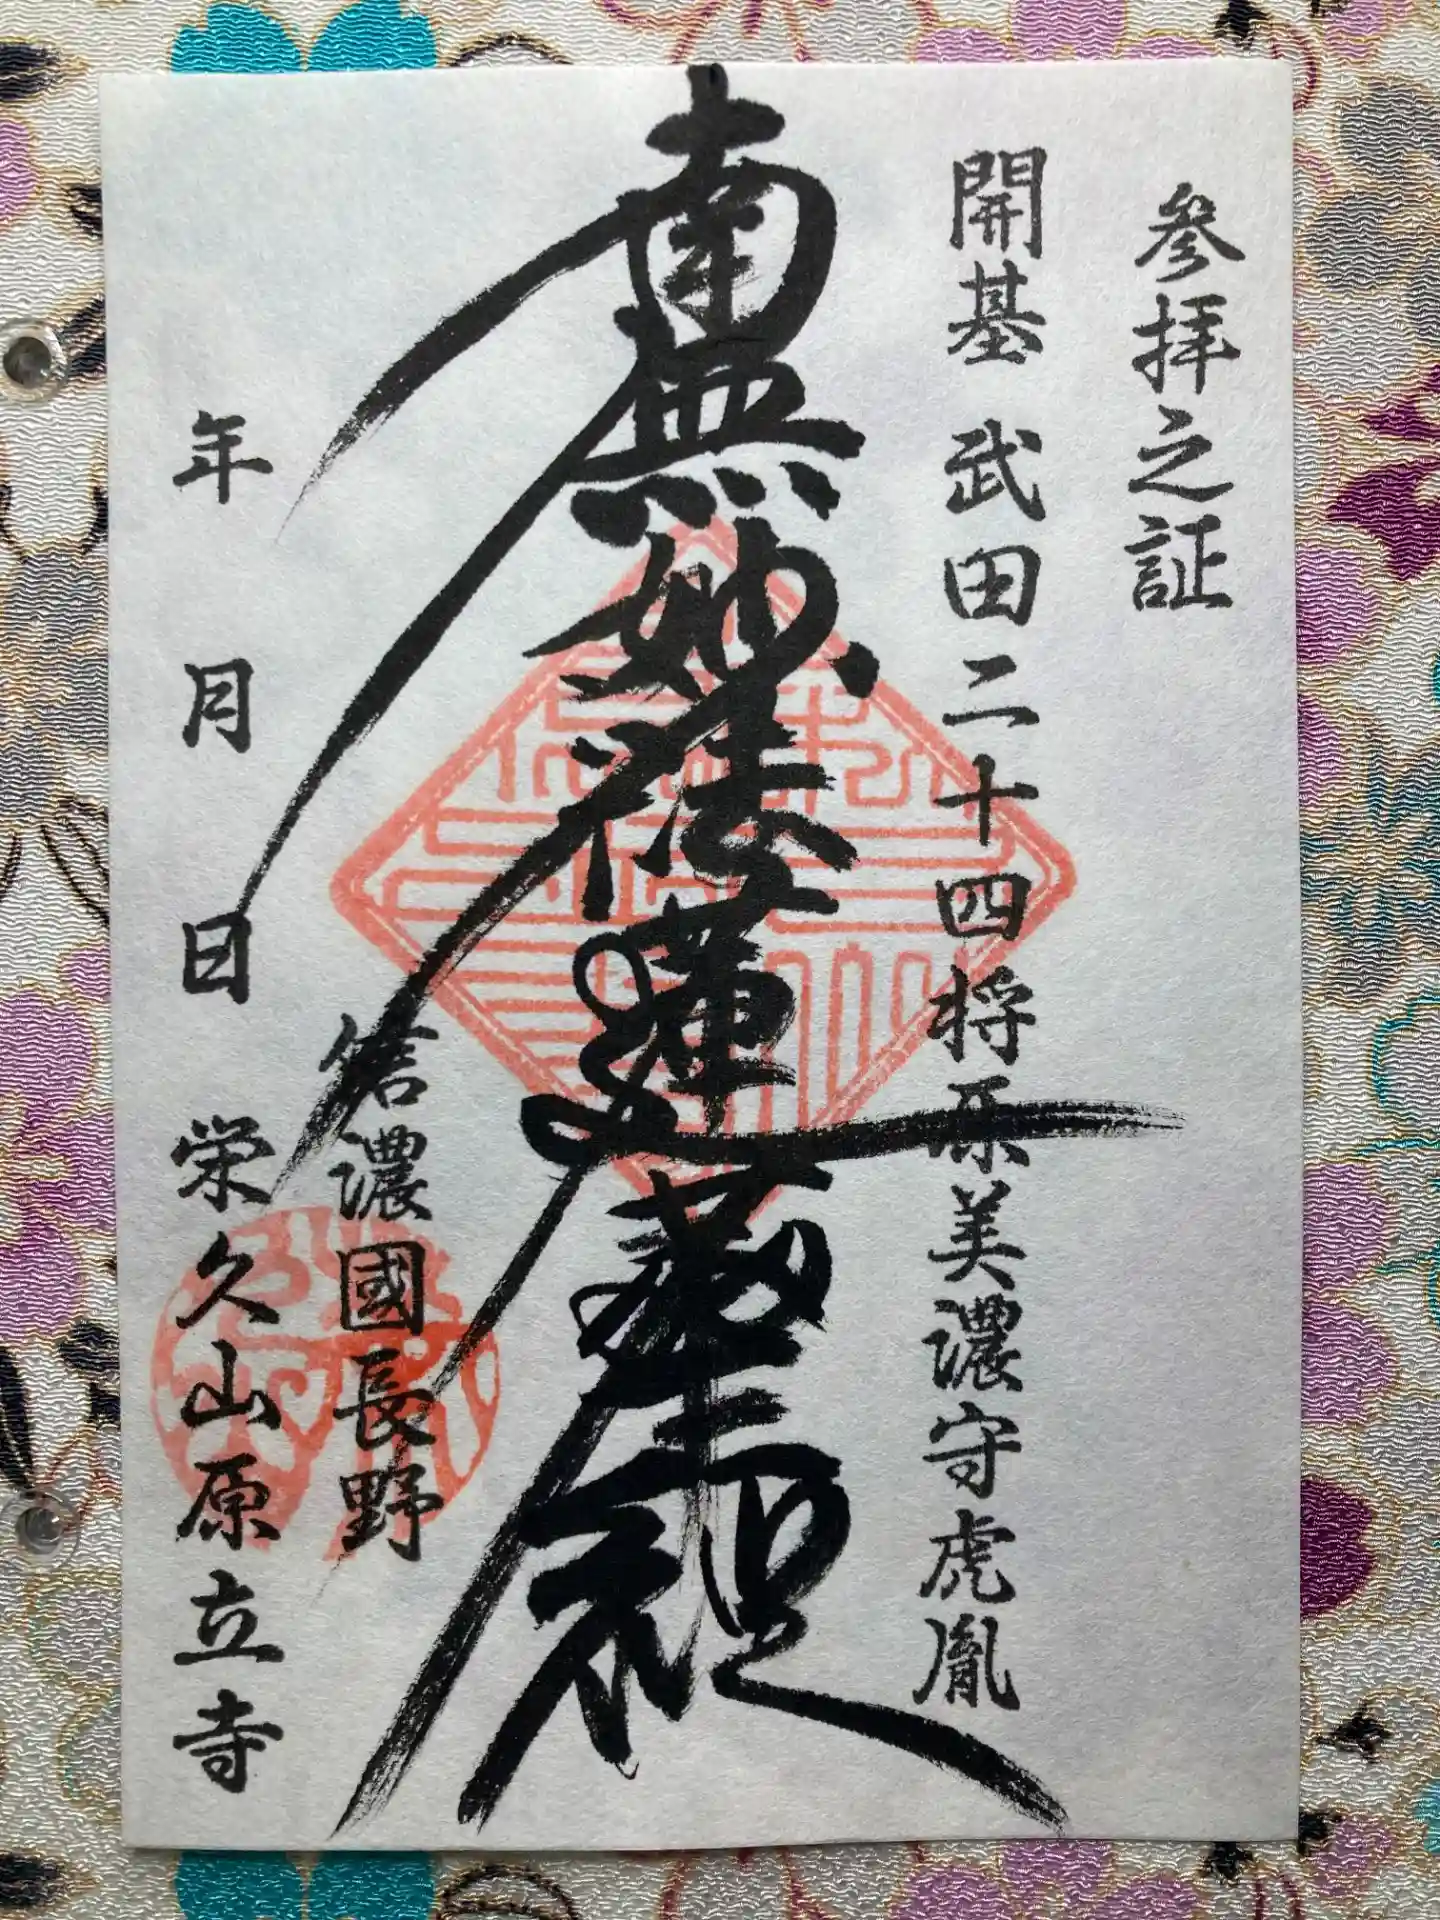 参拝之証
開基 武田二十四将 原美濃守虎胤
南無妙法蓮華経
信濃國長野
年 月 日 栄久山原立寺